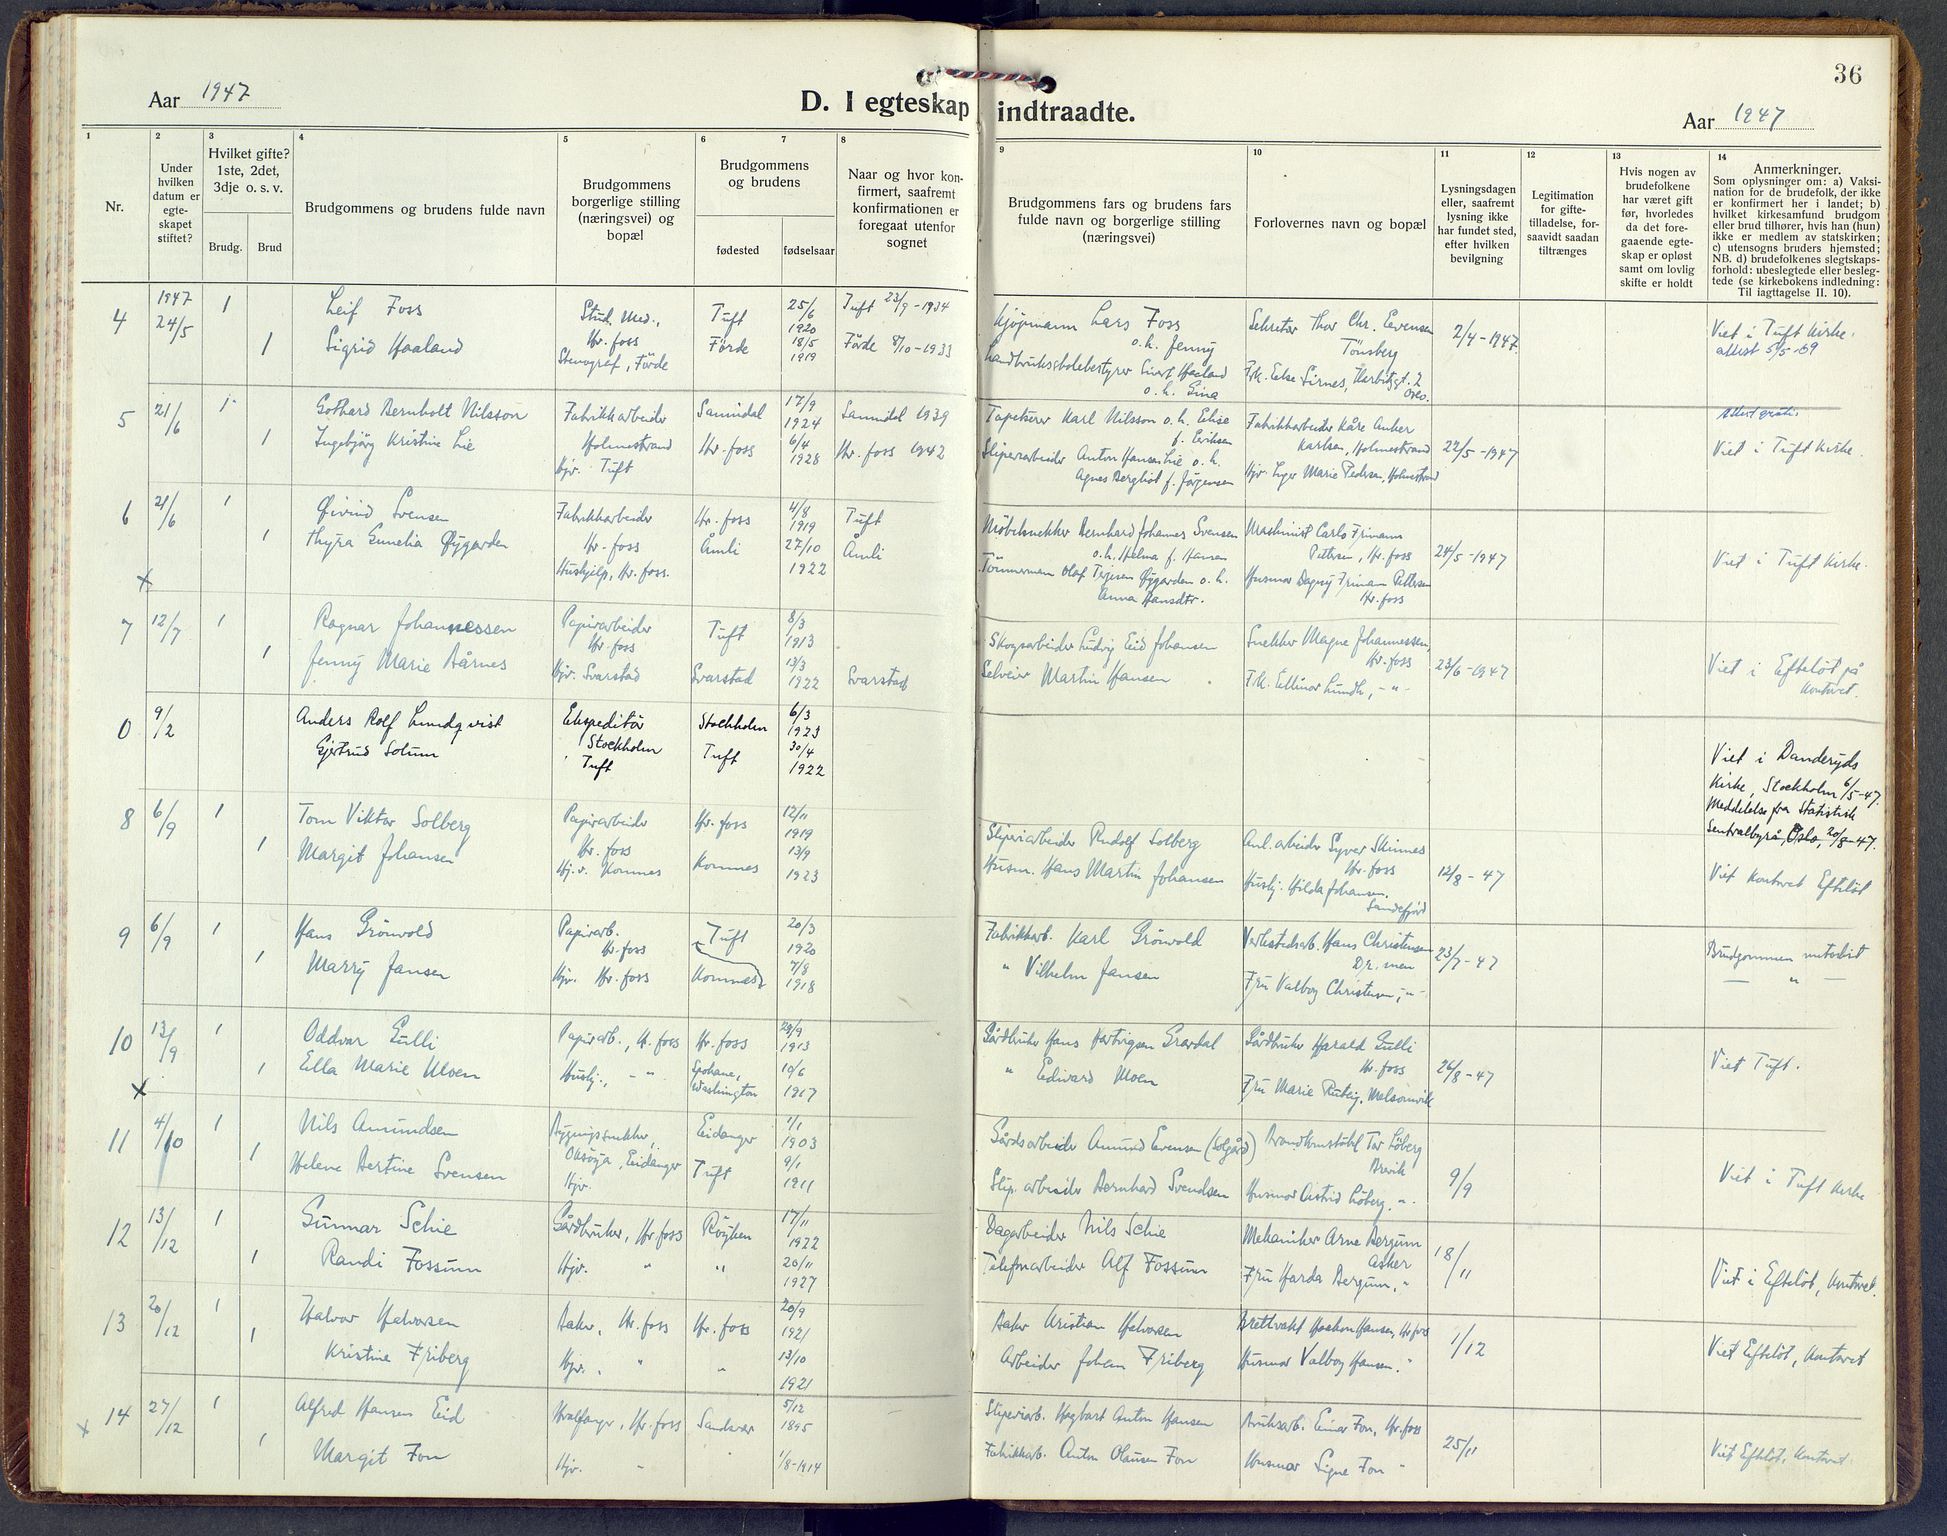 36
Aar 1947
D. I egteskap indtraadte.
Aar 1947
1
2
3
4
5
6
7
8
9
10
11
12
13
14
Nr.
Under hvilken datum er egte-skapet stiftet?
Hvilket gifte? 1ste, 2det, 3dje o. s. v.
Brudg.
Brud
Brudgommens og brudens fulde navn
Brudgommens borgerlige stilling (næringsvei) og bopæl
Brudgommens og brudens
fødested
fødselsaar
Naar og hvor kon-firmert, saafremt konfirmationen er foregaat utenfor sognet
Brudgommens fars og brudens fars fulde navn og borgerlige stilling (næringsvei)
Forlovernes navn og bopæl
Lysningsdagen eller, saafremt lysning ikke har fundet sted, efter hvilken bevilgning
Legitimation for gifte-tilladelse, for-saavidt saadan tiltrænges
Hvis nogen av brudefolkene har været gift før, hvorledes da det fore-gaaende egte-skap er opløst samt om lovlig skifte er holdt
Anmerkninger.
Som oplysninger om: a) Vaksi-nation for de brudefolk, der ikke er konfirmert her i landet; b) hvilket kirkesamfund brudgom eller brud tilhører, hvis han (hun) ikke er medlem av statskirken; c) utensogns bruders hjemsted; NB. d) brudefolkenes slegtskaps-forhold: ubeslegtede eller besleg-tede (se kirkebokens indledning: Til iagttagelse II. 10).
4
1947
24/5
1
1
Leif Foss
Sigrid Haaland
Stud. Med.,
Hv. foss
Stenograf, Förde
Tuft
Förde
25/6 1920
18/5 1919
Tuft 23/9-1934
Förde 8/10-1933
Kjøpmann Lars Foss
o.h. Jenny
Landbruksskolebestyrer Sivert Haaland
o.h. Gina
Sekretær Thor Chr. Evensen
Tønsberg
Frk. Else Sirnes, Harbitzgt. 2
Oslo.
2/4-1947.
Viet i Tuft Kirke.
attest 5/5-59
5
21/6
1
1
Gothard Bernholt Nilsson
Ingebjörg Kristine Lie
Fabrikkarbeider
Holmestrand
Hjv. Tuft
Sannidal
Hv. foss
17/9 1924
6/4 1928
Sannidal 1939
Hv. foss 1942
Tapetserer Karl Nilsson o.h. Elise
f. Eriksen
Sliperiarbeider Anton Hansen Lie o.h.
Agnes Bergliot f. Jörgensen
Fabrikkarbeider Kåre Anker
Karlsen, Holmestrand
Hjv. Inger Marie Pedersen, Holmestrand
22/5-1947
Attest gratis.
Viet i Tuft Kirke.
6
21/6
1
1
Øivind Svensen
Thyra Gunelia Øygarden
Fabrikkarbeider
Hv. foss
Hushjelp, Hv. foss.
Hv. foss
Åmli
4/8 1919
27/10 1922
Tuft
Åmli
Møbelsnekker Bernhard Johannes Svensen
o.h. Helma f. Hansen
Tömmermann Olaf Terjesen Øygarden o.h.
Anna Hansdtr.
Maskinist Carls Frimann
Pettersen, Hv. foss
Husmor Dagny Friman Pettersen
Hv. foss
24/5-1947
Viet i Tuft Kirke.
x
7
12/7
1
1
Ragnar Johannessen
Jenny Marie Aårnes
Papirarbeider
Hv. foss
Hjv. Svarstad
Tuft
Svarstad
8/3 1913
13/3 1922
Svarstad
Skogsarbeider Ludvig Eid Johansen
Selveier Martin Hansen
Snekker Magne Johannessen,
Hv. foss
Frk. Ellinor Lundh, -"-
23/6-1947
Viet i Efteløt på
Kontoret.
0
9/2
Anders Rolf Lundqvist
Gjertrud Solum
Ekspeditör
Stockholm
Tuft
Stockholm
Tuft
6/3 1923
30/4 1922
Viet i Danderyds
Kirke, Stockholm 6/5-47.
Meddelelse fra Statistisk
Sentralbyrå, Oslo, 20/8-47.
8
6/9
1
1
Tom Viktor Solberg
Margit Johansen
Papirarbeider
Hv. foss
Hj.v. Komnes
Hv. foss
Komnes
12/11 1919
13/9 1923
Sliperiarbeider Rudolf Solberg
Husm. Hans Martin Johansen
Anl. arbeider Syver Skinnes
Hv. foss
Hushj. Hilda Johansen.
Sandefjord
12/8-47
Viet Kontoret Efteløt
9
6/9
1
1
Hans Grönvold
Marry Jansen
Papirarb.
Hv. foss
Hjv. Hv. foss
Tuft
Komnes
20/3 1920
7/8 1918
Fabrikkarb. Karl Grönvold
" Vilhelm Jansen
Verkstedsarb. Hans Christensen
Dr. men
Fru Valborg Christensen, -"-
23/7-47
Brudgommen metodist
— " —
10
13/9
1
1
Oddvar Gulli
Ella Marie Moen
Papirarb., Hv. foss
Hushj., -"-
Hv. foss
Spokane, Washington
29/9 1913
10/6 1917
Gårdbruker Hans Hartvigsen Gravdal
" Edward Moen
Gårdbruker Harald Gulli
Hv. foss
Fru Marie Rutzig. Melsomvik
26/8-47
Viet Tuft.
x
11
4/10
1
1
Nils Amundsen
Helene Bertine Svensen
Bygningssnekker,
Oksöya, Eidanger
Hjv.
Eidanger
Tuft
1/1 1903
9/1 1911
Gårdsarbeider Amund Evensen (Solgård)
Slip. arbeider Bernhard Svendsen
Brandkonstabel Tor Löberg
Brevik
Husmor Astrid Löberg, "
9/9
Viet i Tuft Kirke
12
13/12
1
1
Gunnar Schie
Randi Fossum
Gårdbruker, Hv. foss
Hjv. "
Röyken
"
17/11 1922
20/11 1927
Dagarbeider Nils Schie
Telefonarbeider Alf Fossum
Mekaniker Arne Bergum
Asker
Fru Harda Bergum, "
18/11
Viet i Efteløt, Kontoret.
13
20/12
1
1
Halvor Halvorsen
Kristine Friberg
Baker, Hv. foss
Hjv. "
Hv. foss
"
20/9 1921
13/10 1921
Baker Kristian Halvorsen
Arbeider Johan Friberg
Brettvakt Haakon Hansen, Hv. foss
Husmor Valborg Hansen. "
1/12
Viet Efteløt, Kontoret
x
14
27/12
1
1
Alfred Hansen Eid
Margit Fon
Hvalfanger, Hv. foss
Hjv. "
Sandsvær
"
5/12 1895
1/8-1914
Sliperiarb. Hagbart Anton Hansen
Fabrikkarb. Anton Olausen Fon
Bruksarb. Einar Fon, Hv. foss
Husmor Signe Fon "
25/11
Viet Efteløt, Kontoret.